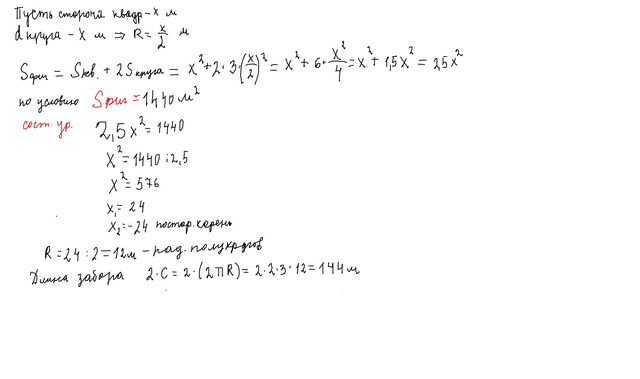 Пусть сторона квадр - x м
d круга - x м ⇒ R = x/2 м
Sфиг = Sкв. + 2Sкруга = x² + 2·3·(x/2)² = x² + 6·x²/4 = x² + 1,5x² = 2,5x²
по условию Sфиг = 1440 м²
сост. ур. 2,5x² = 1440
x² = 1440 : 2,5
x² = 576
x₁ = 24
x₂ = -24 постор. корень
R = 24 : 2 = 12 м - рад. полукругов
Длина забора 2·C = 2·(2πR) = 2·2·3·12 = 144 м